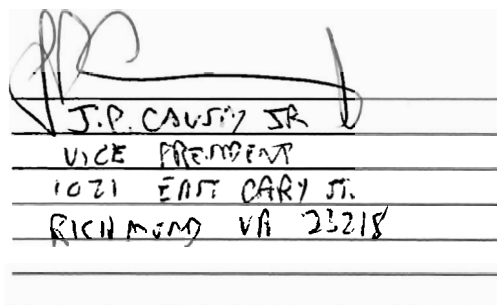 J.P. CAUSEY JR
VICE PRESIDENT
1021 EAST CARY ST.
RICHMOND VA 23218